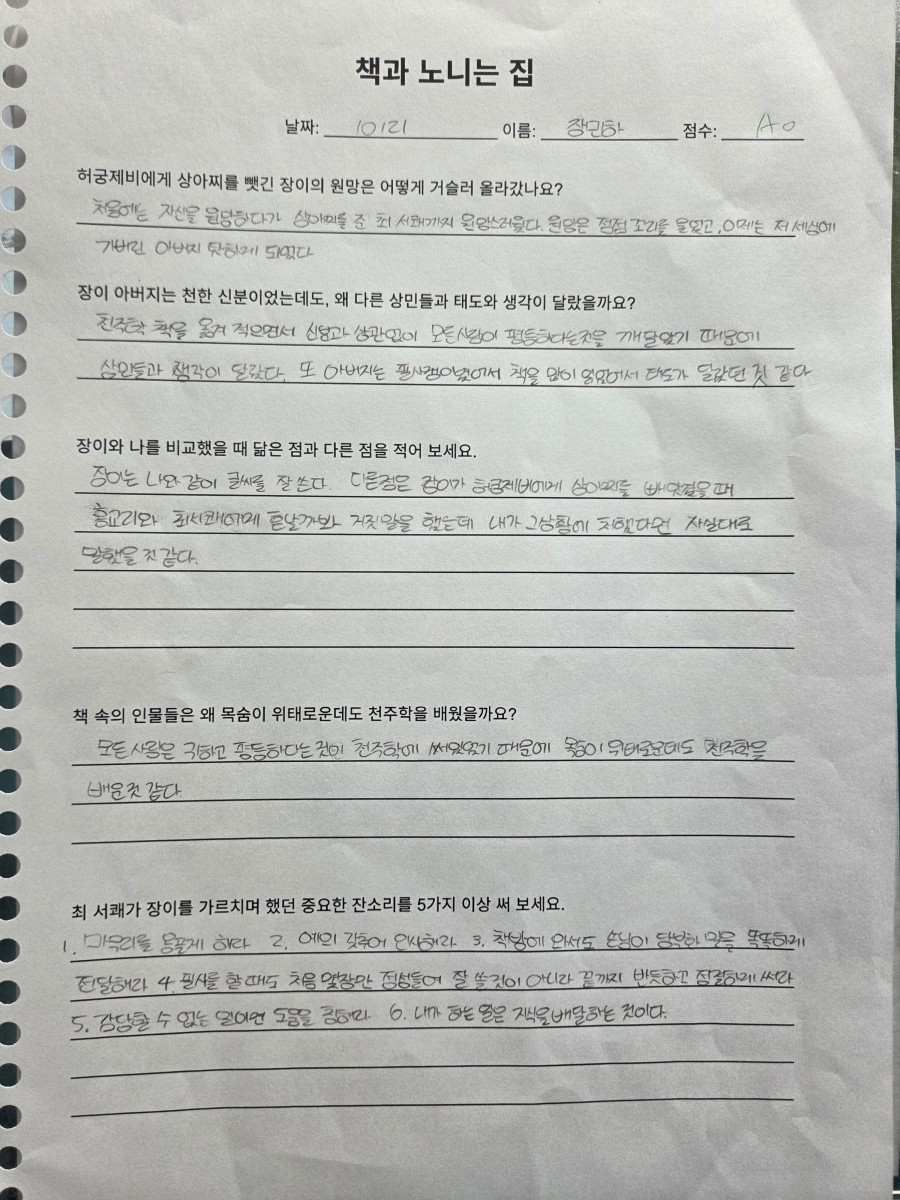 책과 노니는 집
날짜: 10/21 이름: 장민하 점수: A0
허궁제비에게 상아찌를 뺏긴 장이의 원망은 어떻게 거슬러 올라갔나요?
처음에는 자신을 원망하다가 상아찌를 준 최 서쾌까지 원망스러웠다. 원망은 점점 꼬리를 물었고, 이제는 저 세상에
가버린 아버지 탓하게 되었다
장이 아버지는 천한 신분이었는데도, 왜 다른 상민들과 태도와 생각이 달랐을까요?
천주학 책을 옮겨 적으면서 신분과 상관없이 모든사람이 평등하다는것을 깨달았기 때문에
상민들과 생각이 달랐다. 또 아버지는 필사쟁이였어서 책을 많이 읽었어서 태도가 달랐던 것 같다
장이와 나를 비교했을 때 닮은 점과 다른 점을 적어 보세요.
장이는 나와 같이 글씨를 잘 쓴다. 다른점은 장이가 허궁제비에게 상아찌를 빼앗겼을 때
홍교리와 최서쾌에게 혼날까봐 거짓말을 했는데 내가 그상황에 처했다면 사실대로
말했을 것 같다.
책 속의 인물들은 왜 목숨이 위태로운데도 천주학을 배웠을까요?
모든 사람은 귀하고 평등하다는 것이 천주학에 써있었기 때문에 목숨이 위태로운데도 천주학을
배운것 같다.
최 서쾌가 장이를 가르치며 했던 중요한 잔소리를 5가지 이상 써 보세요.
1. 마무리를 야물게 하라 2. 예의 갖추어 인사해라 3. 책방에 와서도 손님이 당부한 말을 똑똑하게
전달해라 4. 필사를 할 때도 처음 몇장만 정성들여 잘 쓸 것이 아니라 끝까지 반듯하고 정갈하게 써라
5. 감당할 수 없는 일이면 도움을 청해라 6. 내가 하는 일은 지식을 배달하는 것이다.